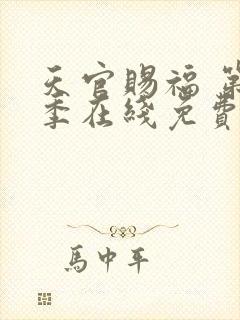 天官賜福 第
季在綫免費
馬中平